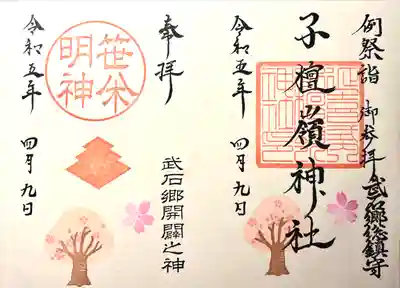 例祭詣 御参拝 武石郷総鎮守
子檀嶺神社
令和五年 四月九日
奉拝
武石郷開闢之神
笹焼明神
令和五年 四月九日